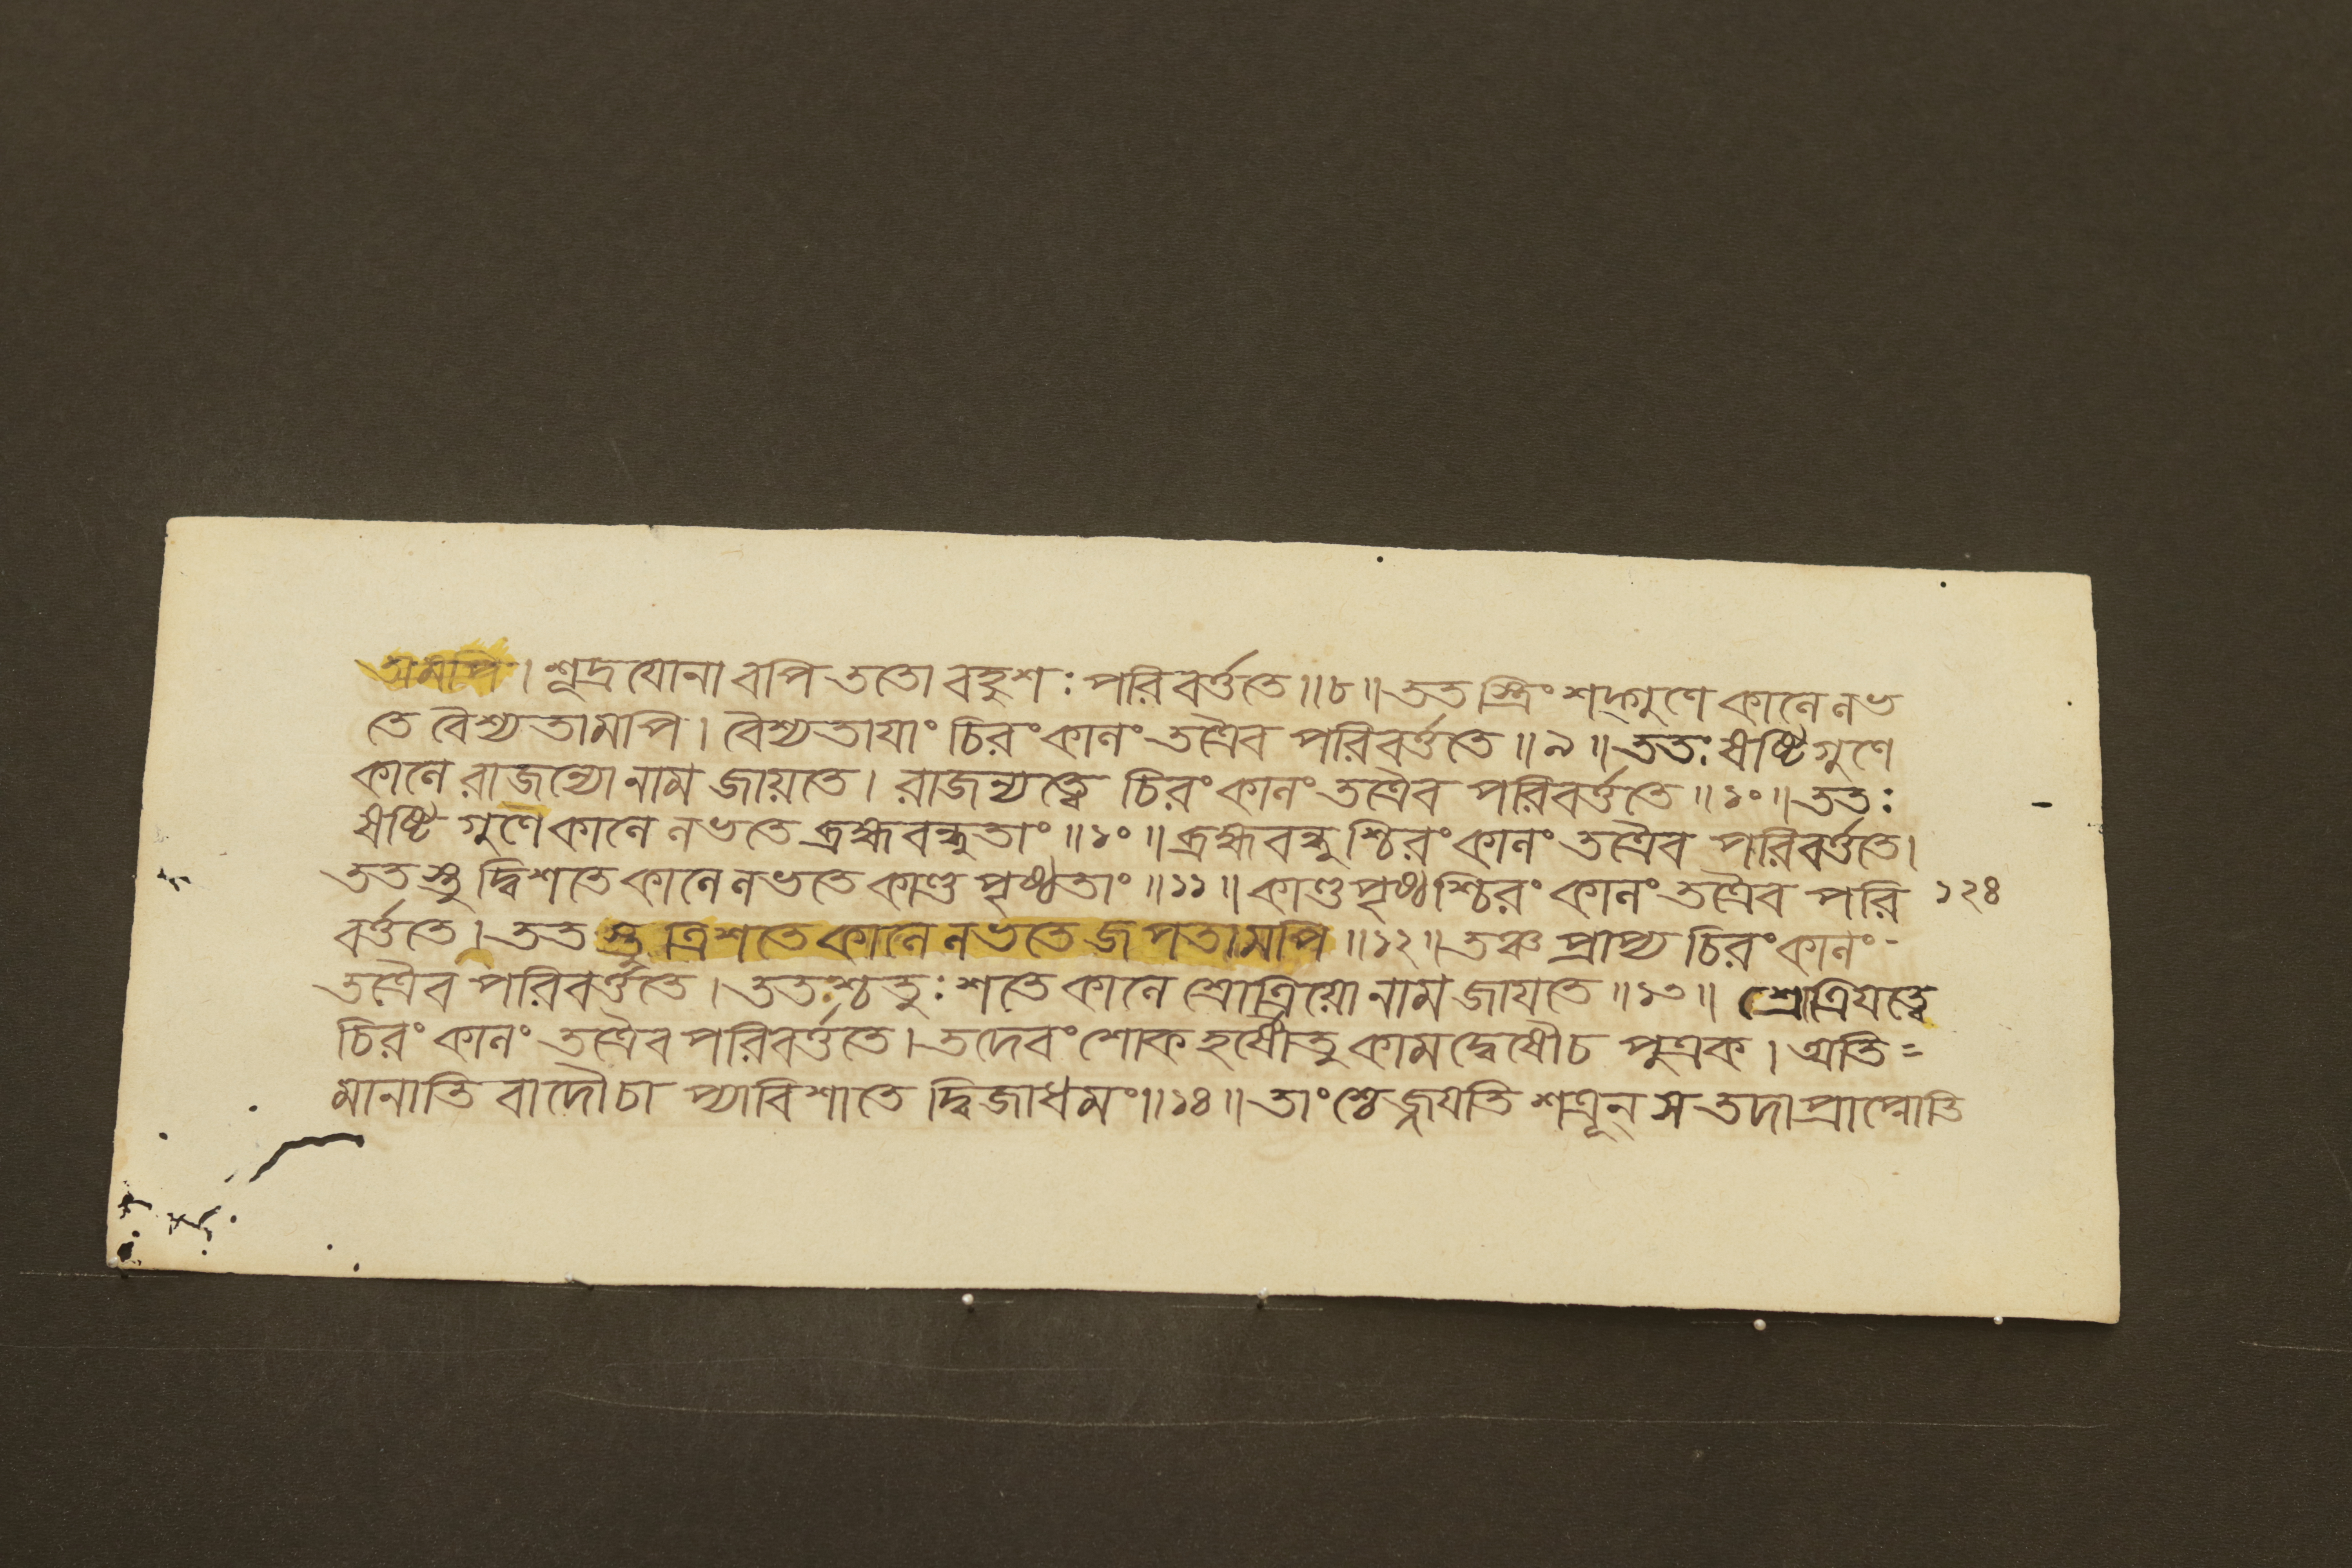 ত্রমপি। শূদ্রযোনাবপি ততো বহুশঃ পরিবর্ত্ততে॥৮॥ ততস্ত্রিংশদ্গুণে কালে লভ
তে বৈশ্যতামপি। বৈশ্যতাযাং চিরং কালং তত্রৈব পরিবর্ত্ততে॥৯॥ ততঃ ষষ্টিগুণে
কালে রাজন্যো নাম জায়তে। রাজন্যত্বে চিরং কালং তত্রৈব পরিবর্ত্ততে॥১০॥ ততঃ
ষষ্টিগুণে কালে লভতে ব্রহ্মবন্ধুতাং॥১০॥ ব্রহ্মবন্ধুশ্চিরং কালং তত্রৈব পরিবর্ত্ততে।
ততস্তু দ্বিশতে কালে লভতে কাণ্ডপৃষ্ঠতাং॥১১॥ কাণ্ডপৃষ্ঠশ্চিরং কালং তত্রৈব পরি ১২৪
বর্ত্ততে। ততস্তু ত্রিশতে কালে লভতে জপতামপি॥১২॥ তঞ্চ প্রাপ্য চিরং কালং-
তত্রৈব পরিবর্ত্ততে। ততশ্চতুঃশতে কালে শ্রোত্রিয়ো নাম জাযতে॥১৩॥ শ্রোত্রিযত্বে
চিরং কালং তত্রৈব পরিবর্ত্ততে। তদেবং শোকহর্ষৌতু কামদ্বেষৌচ পুত্রক। অতি=
মানাতিবাদৌচা প্যাবিশাতে দ্বিজাধমং॥১৪॥ তাংশ্চেজ্জযতি শত্রূন্ স তদা প্রাপ্নোতি